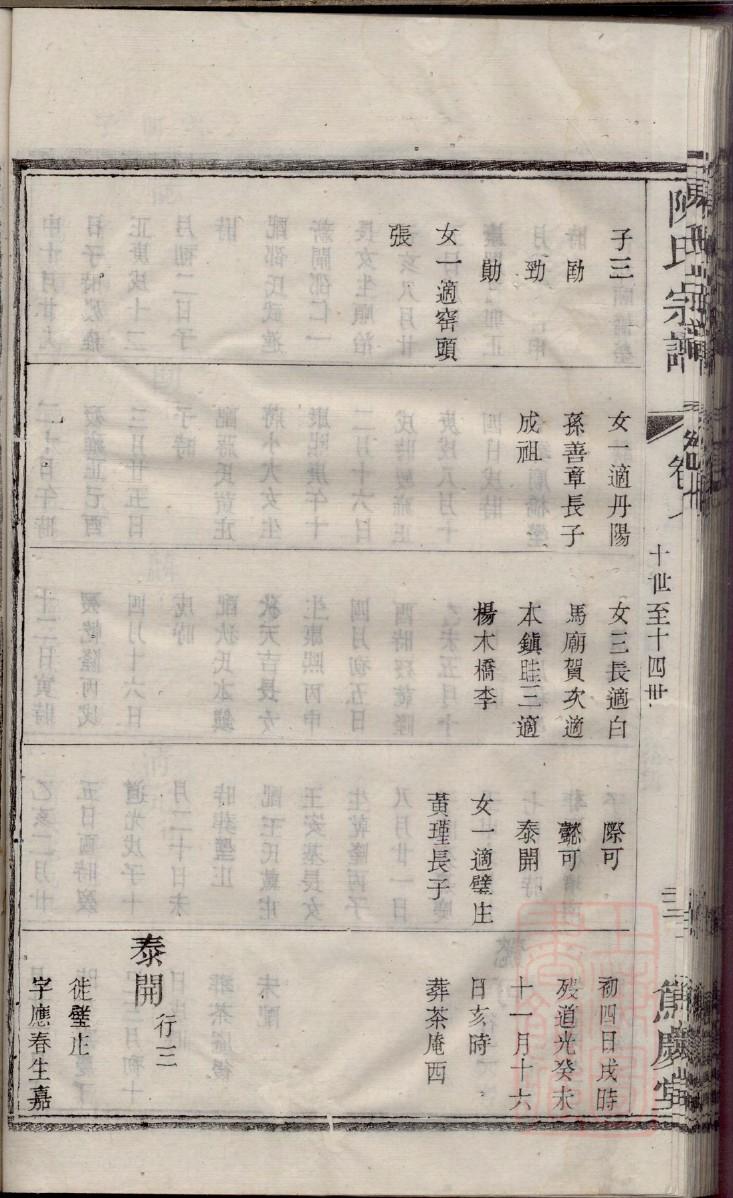 陳氏宗譜
卷九
十世至十四世
三
篤慶堂
子三
勛
勁
勛
女一適窑頭
張
女一適丹陽
孫善章長子
成祖
女三長適白
馬廟賀次適
本鎮眭三適
楊木橋李
際可
懿可
泰開
女一適璧庄
黃瑾長子
初四日戌時
殁道光癸未
十一月十六
日亥時
葬茶庵西
泰開行三
徙璧庄
字應春生嘉